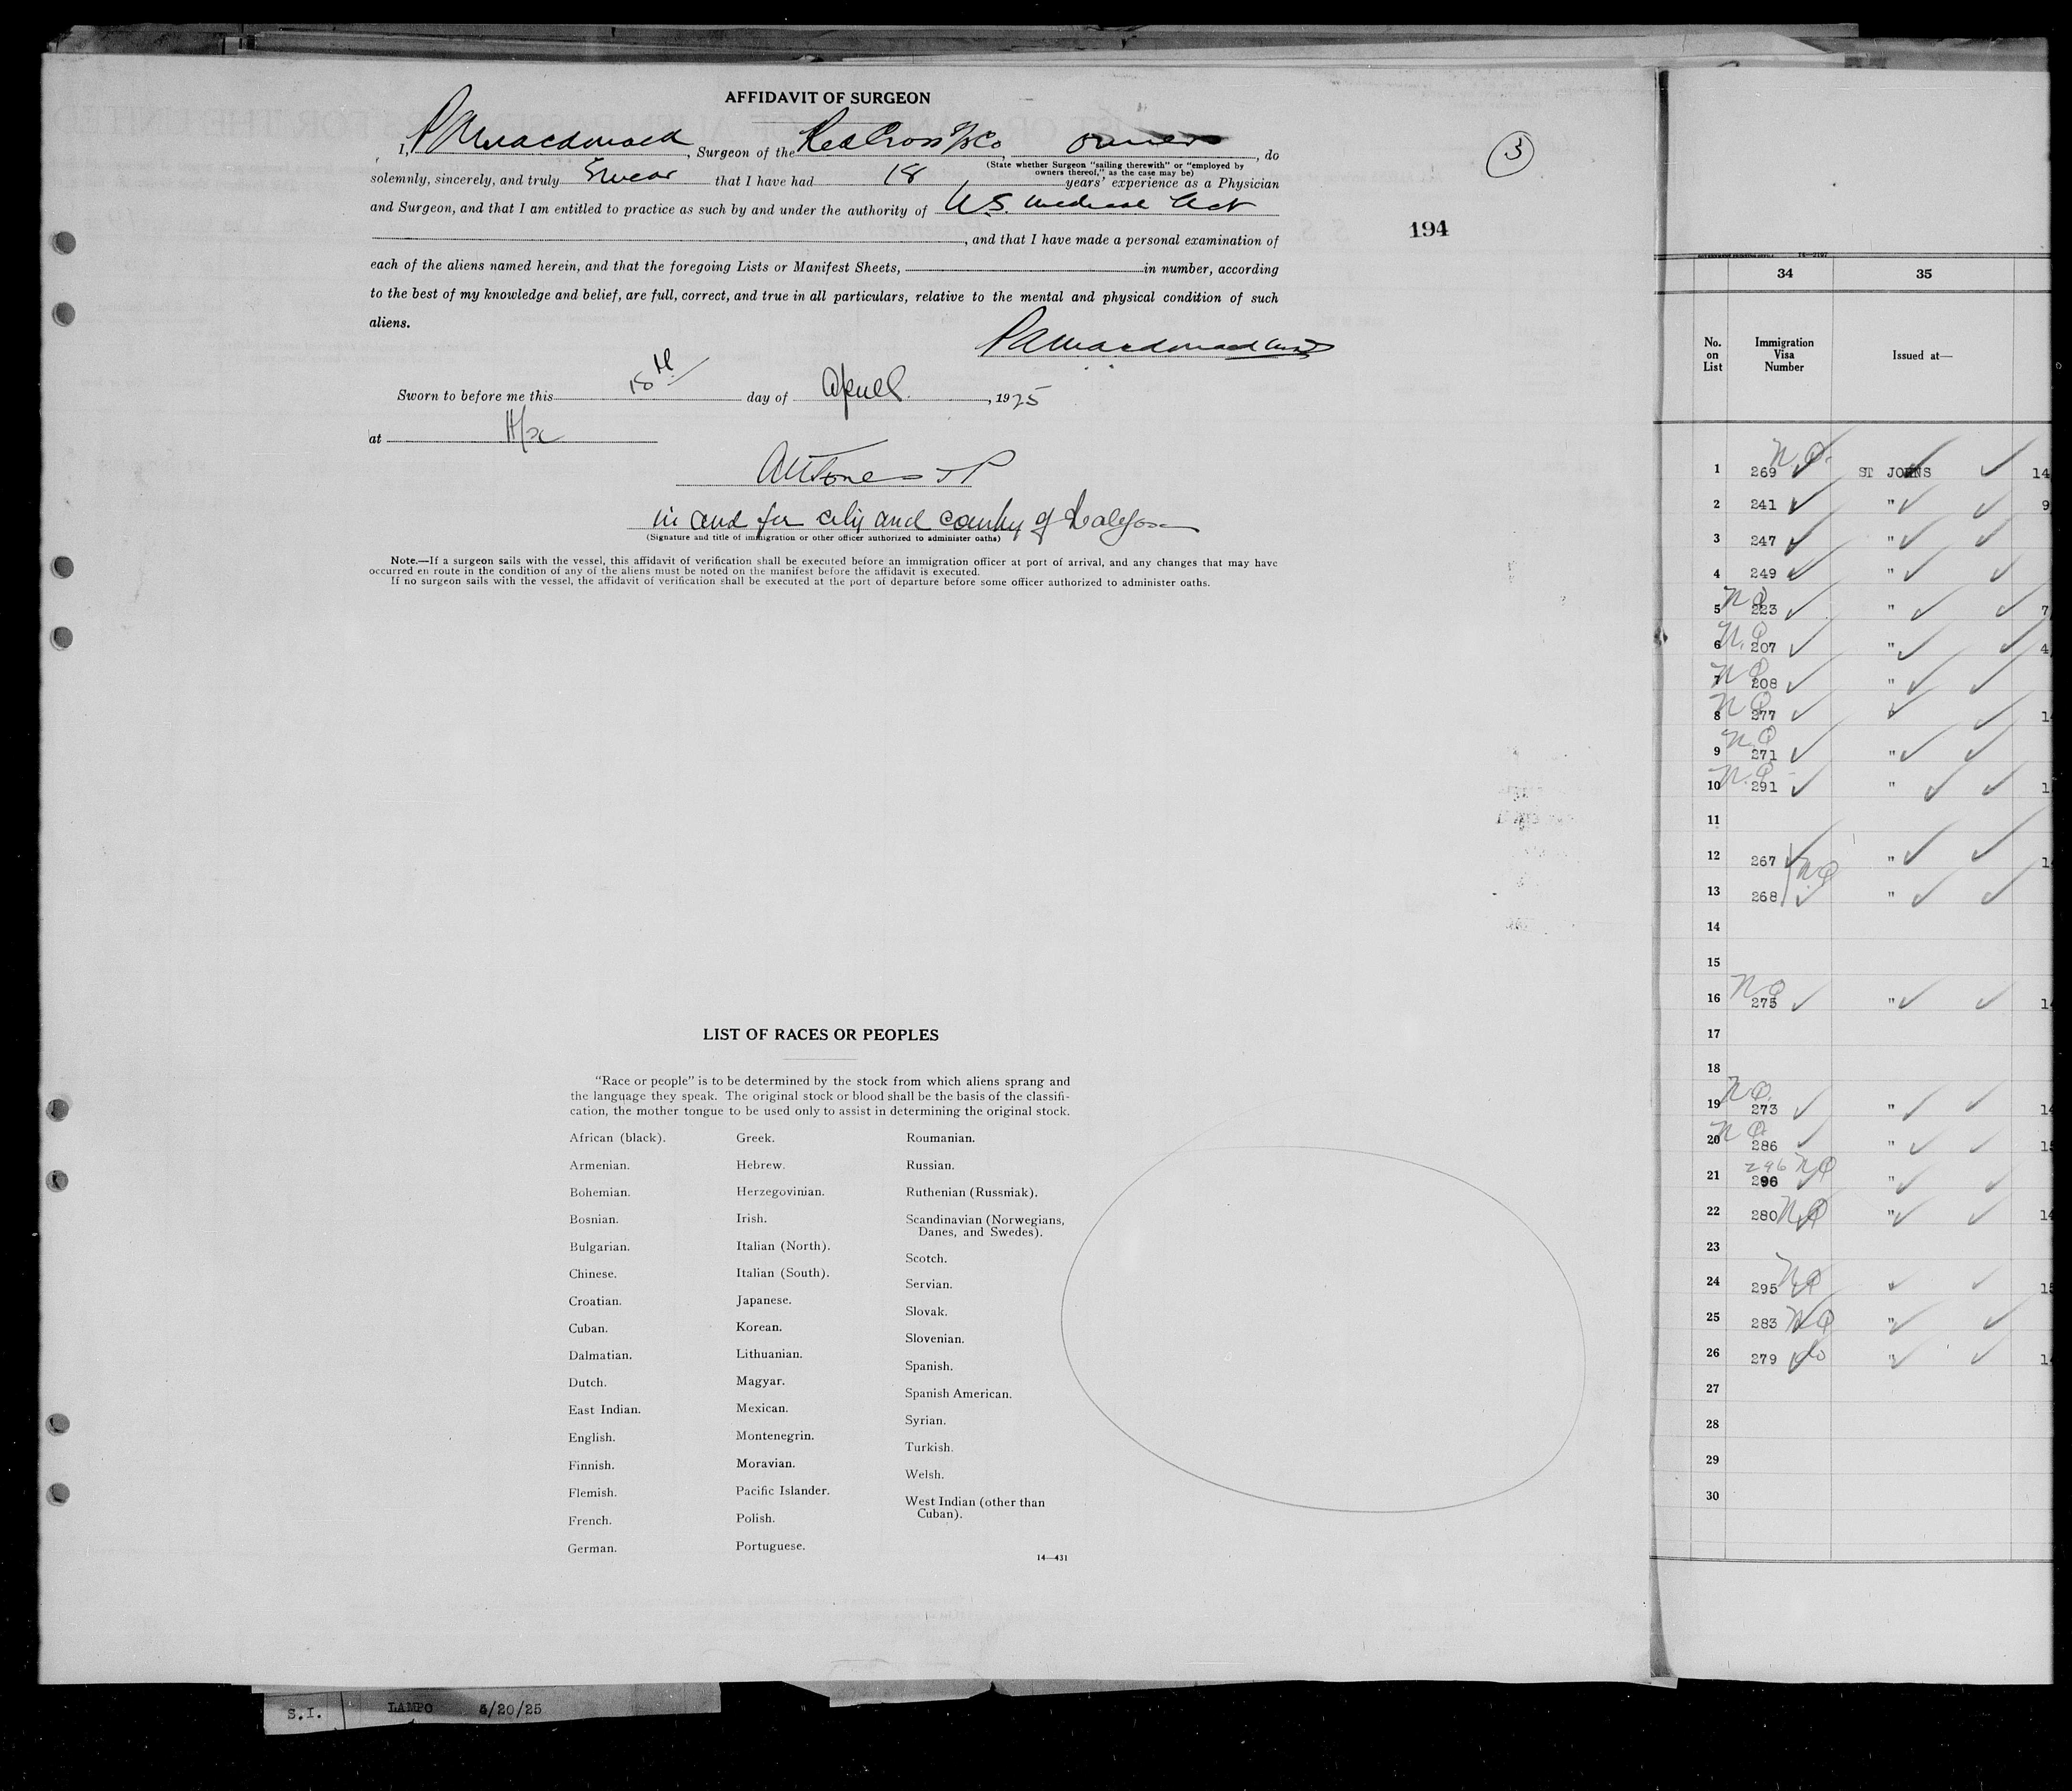 AFFIDAVIT OF SURGEON
I, P A Macdonald, Surgeon of the Red Cross Co, owners, do
(State whether Surgeon "sailing therewith" or "employed by
owners thereof," as the case may be)
solemnly, sincerely, and truly Swear that I have had 18 years' experience as a Physician
and Surgeon, and that I am entitled to practice as such by and under the authority of U.S. Medical Act
, and that I have made a personal examination of
each of the aliens named herein, and that the foregoing Lists or Manifest Sheets, in number, according
to the best of my knowledge and belief, are full, correct, and true in all particulars, relative to the mental and physical condition of such
aliens.
P A Macdonald
Sworn to before me this 18th day of April, 1925
at Hx
Jones JP
in and for city and county of Halifax
(Signature and title of immigration or other officer authorized to administer oaths)
Note.—If a surgeon sails with the vessel, this affidavit of verification shall be executed before an immigration officer at port of arrival, and any changes that may have
occurred en route in the condition of any of the aliens must be noted on the manifest before the affidavit is executed.
If no surgeon sails with the vessel, the affidavit of verification shall be executed at the port of departure before some officer authorized to administer oaths.
3
194
LIST OF RACES OR PEOPLES
"Race or people" is to be determined by the stock from which aliens sprang and
the language they speak. The original stock or blood shall be the basis of the classifi-
cation, the mother tongue to be used only to assist in determining the original stock.
African (black).
Armenian.
Bohemian.
Bosnian.
Bulgarian.
Chinese.
Croatian.
Cuban.
Dalmatian.
Dutch.
East Indian.
English.
Finnish.
Flemish.
French.
German.
Greek.
Hebrew.
Herzegovinian.
Irish.
Italian (North).
Italian (South).
Japanese.
Korean.
Lithuanian.
Magyar.
Mexican.
Montenegrin.
Moravian.
Pacific Islander.
Polish.
Portuguese.
Roumanian.
Russian.
Ruthenian (Russniak).
Scandinavian (Norwegians,
Danes, and Swedes).
Scotch.
Servian.
Slovak.
Slovenian.
Spanish.
Spanish American.
Syrian.
Turkish.
Welsh.
West Indian (other than
Cuban).
14—431
S.I. LAMPO 4/20/25
34 35
No.
on
List
Immigration
Visa
Number
Issued at—
1 269 N.Q. ST JOHNS 14
2 241 " 9
3 247 "
4 249 "
5 NQ 223 " 7
6 N.Q 207 " 4
7 NQ 208 "
8 NQ 277 1
9 N.Q 271 "
10 N.Q 291 " 1
11
12 267 NQ " 1
13 268 "
14
15
16 NQ 275 " 14
17
18
19 N.Q. 273 " 14
20 NQ 286 " 15
21 296 NQ 296 "
22 280 NQ " 14
23
24 295 NQ " 15
25 283 NQ "
26 279 do " 1
27
28
29
30